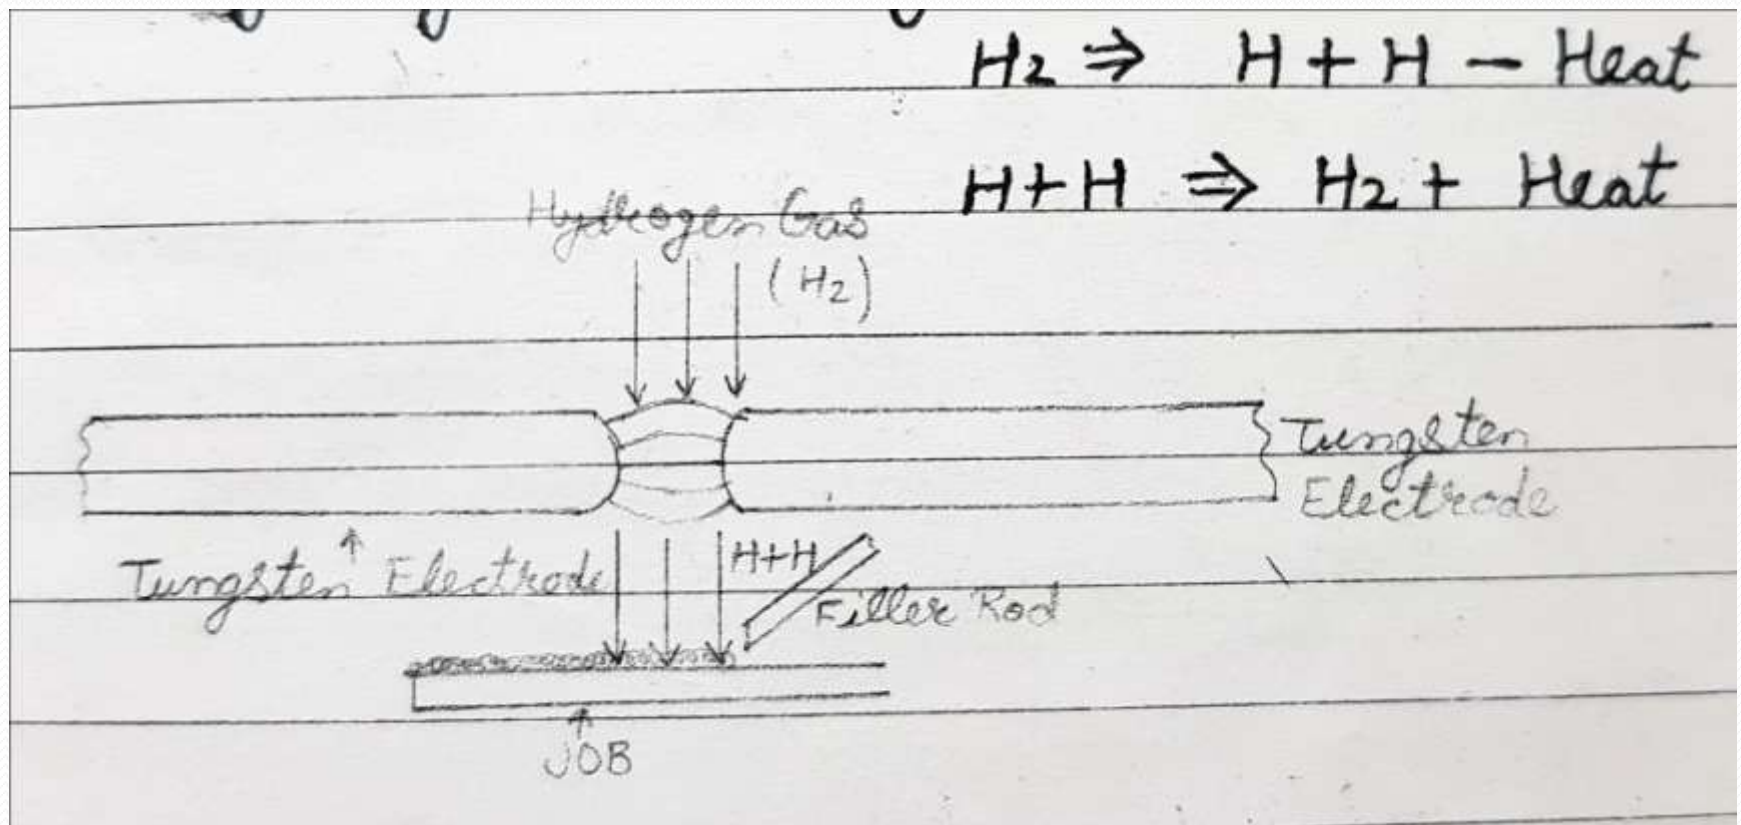 H2 ⇒ H + H - Heat
H+H ⇒ H2 + Heat
Hydrogen Gas
(H2)
Tungsten
Electrode
Tungsten Electrode
H+H
Filler Rod
JOB